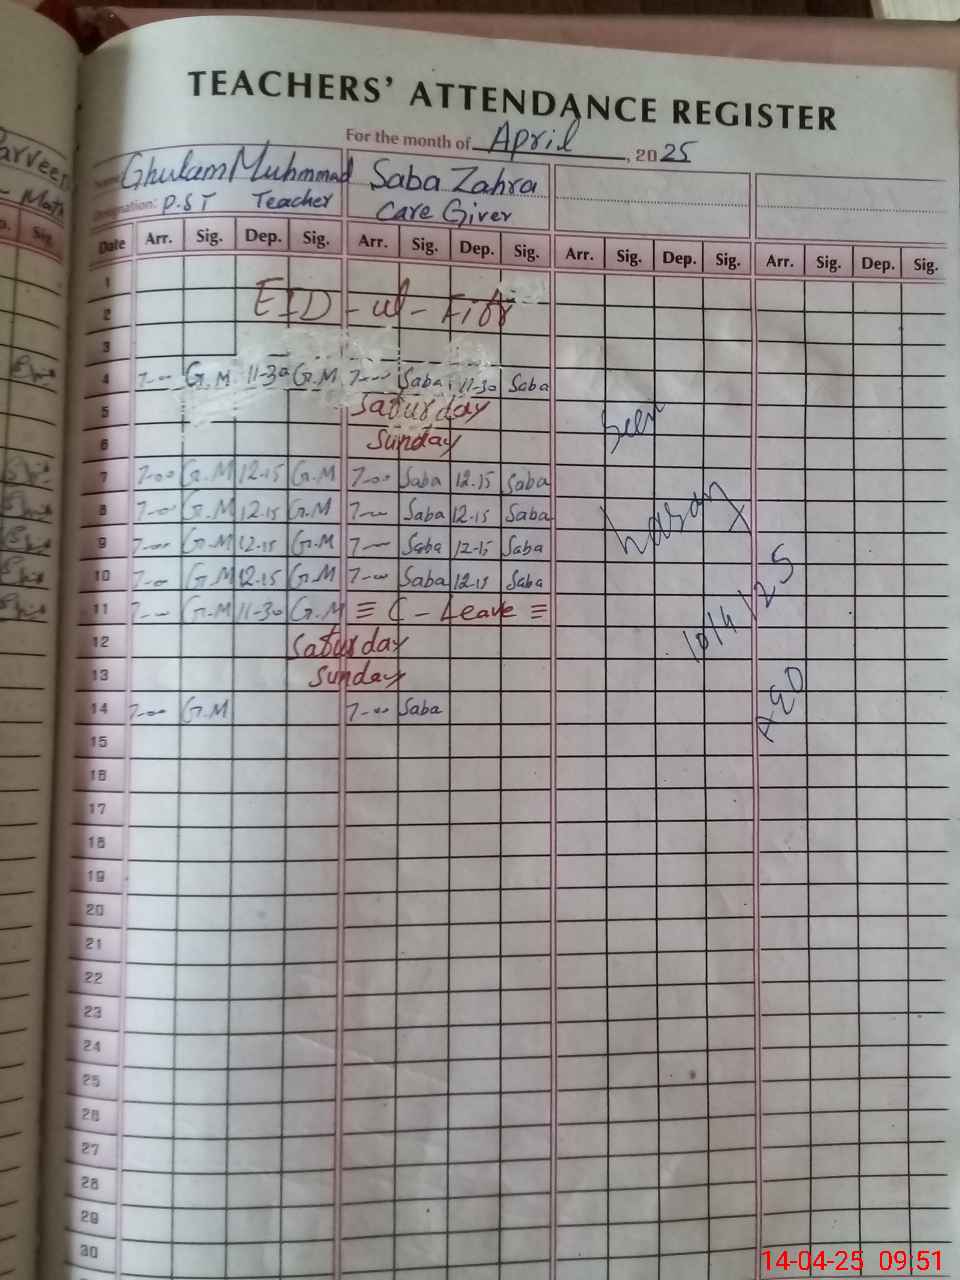 TEACHERS' ATTENDANCE REGISTER
For the month of April, 2025
Name: Ghulam Muhmmad Saba Zahra
Designation: P.S.T Teacher Care Giver
Date Arr. Sig. Dep. Sig. Arr. Sig. Dep. Sig. Arr. Sig. Dep. Sig. Arr. Sig. Dep. Sig.
1
2 EID-ul-Fitr
3
4 7-00 G.M 11-30 G.M 7-00 Saba 11-30 Saba
5 Saturday
6 Sunday
Seen
7 7-00 G.M 12.15 G.M 7-00 Saba 12.15 Saba
8 7-00 G.M 12.15 G.M 7-00 Saba 12-15 Saba
9 7-00 G.M 12-15 G.M 7-00 Saba 12-15 Saba
10 7-00 G.M 12.15 G.M 7-00 Saba 12-15 Saba
11 7-00 G.M 11-30 G.M ≡ C-Leave ≡
10/4/25
12 Saturday
13 Sunday
AEO
14 7-00 G.M 7-00 Saba
15
16
17
18
19
20
21
22
23
24
25
26
27
28
29
30
14-04-25 09:51